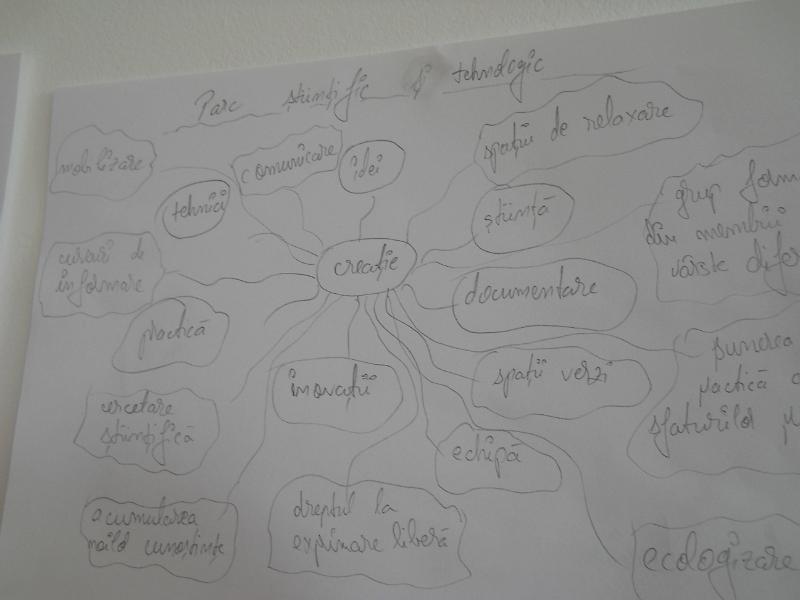 Parc științific și tehnologic
mobilizare
comunicare
idei
spații de relaxare
tehnici
știință
grup form
din membrii
vârste difer
cursuri de
informare
creație
documentare
practică
inovații
spații verzi
punerea
practică
sfaturilor
cercetare
științifică
echipă
acumularea
noilor cunoștințe
dreptul la
exprimare liberă
ecologizare